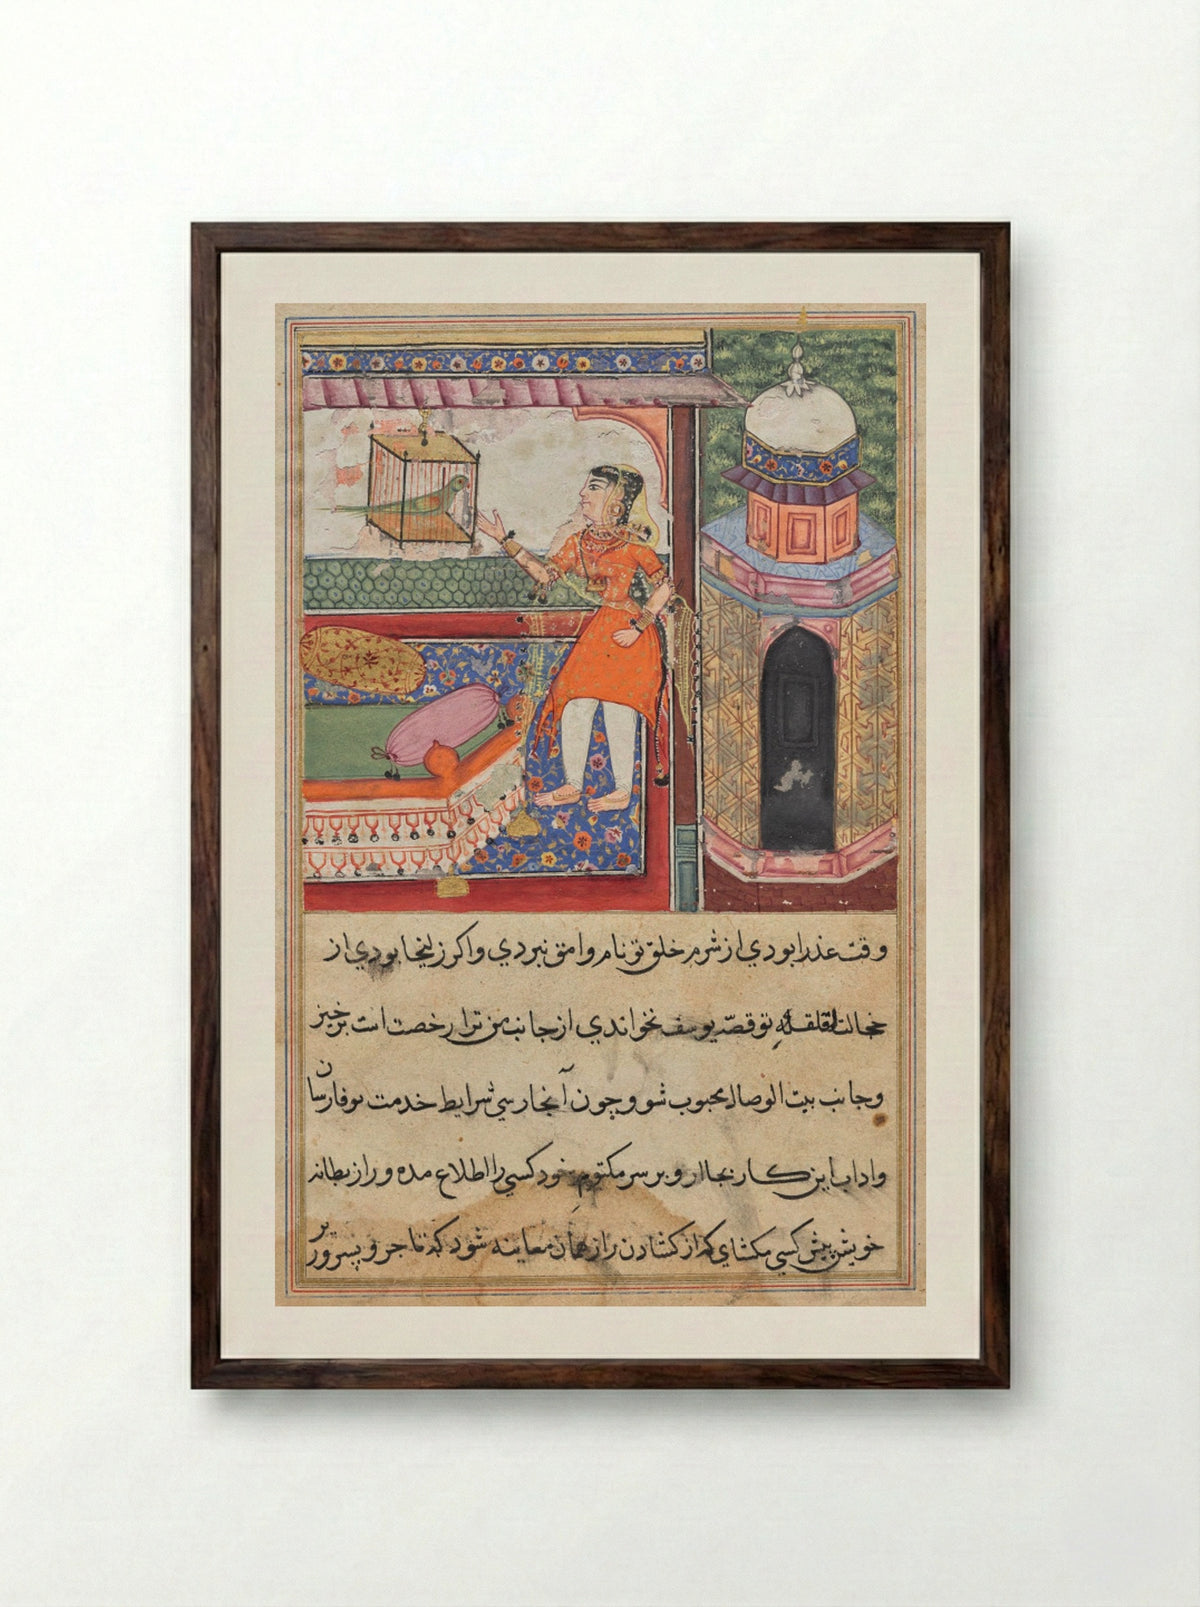 وقت عذرا بودي از شرم خلق تو نام وامق نبردي واكر زليخا بودي از
خجالت لقلقله تو قصّه يوسف نخواندي از جانب من ترا رخصت است برخيز
وجانب بيت الوصال محبوب شو و چون آنجا رسي شرايط خدمت
واداب اين كار بجا ار و بر سر مكتوم خود كسي را اطلاع مده و راز بطانه
خويش پيش كسي مكشاي كه از كشادن راز همان معاينه شود كه تاجر و پسر